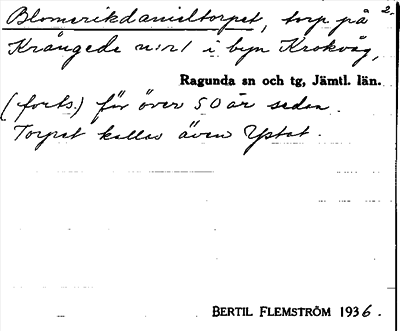 2.
Blomerikdanieltorpet, torp på
Krångede n:r 1 i byn Krokvåg,
Ragunda sn och tg, Jämtl. län.
(forts.) för över 50 år sedan.
Torpet kallas även Ystat.
BERTIL FLEMSTRÖM 1936.